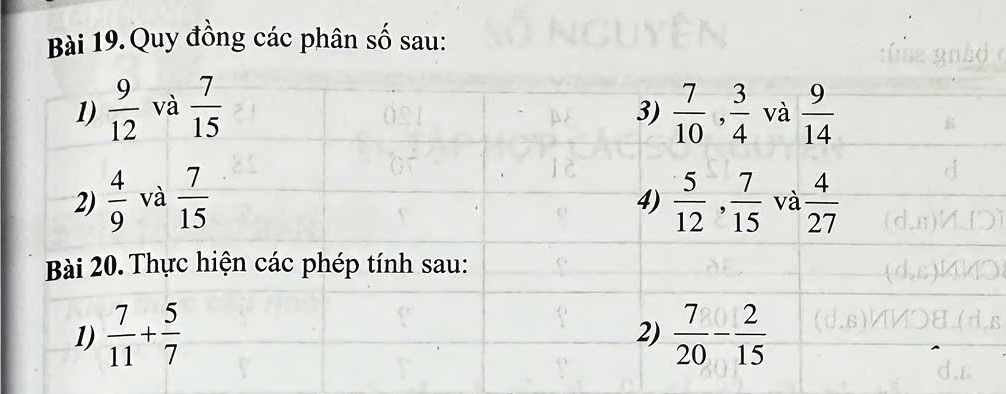 Bài 19. Quy đồng các phân số sau:
1) 9/12 và 7/15
3) 7/10 , 3/4 và 9/14
2) 4/9 và 7/15
4) 5/12 , 7/15 và 4/27
Bài 20. Thực hiện các phép tính sau:
1) 7/11 + 5/7
2) 7/20 − 2/15